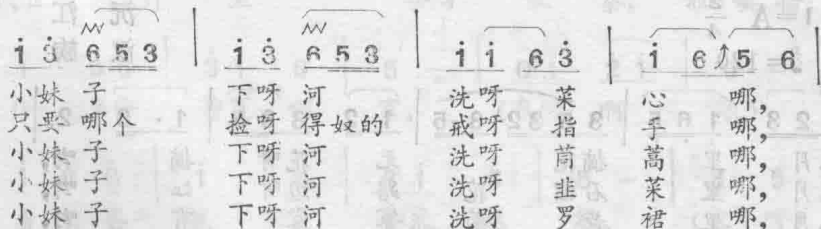 i 3̇ 6 5 3 | i 3̇ 6 5 3 | i i 6 3̇ | i 6 5 6 |
小妹 子 下呀 河 洗呀 菜 心 哪,
只要 哪个 捡呀 得奴的 戒呀 指 手 哪,
小妹 子 下呀 河 洗呀 茼 蒿 哪,
小妹 子 下呀 河 洗呀 韭 菜 哪,
小妹 子 下呀 河 洗呀 罗 裙 哪,